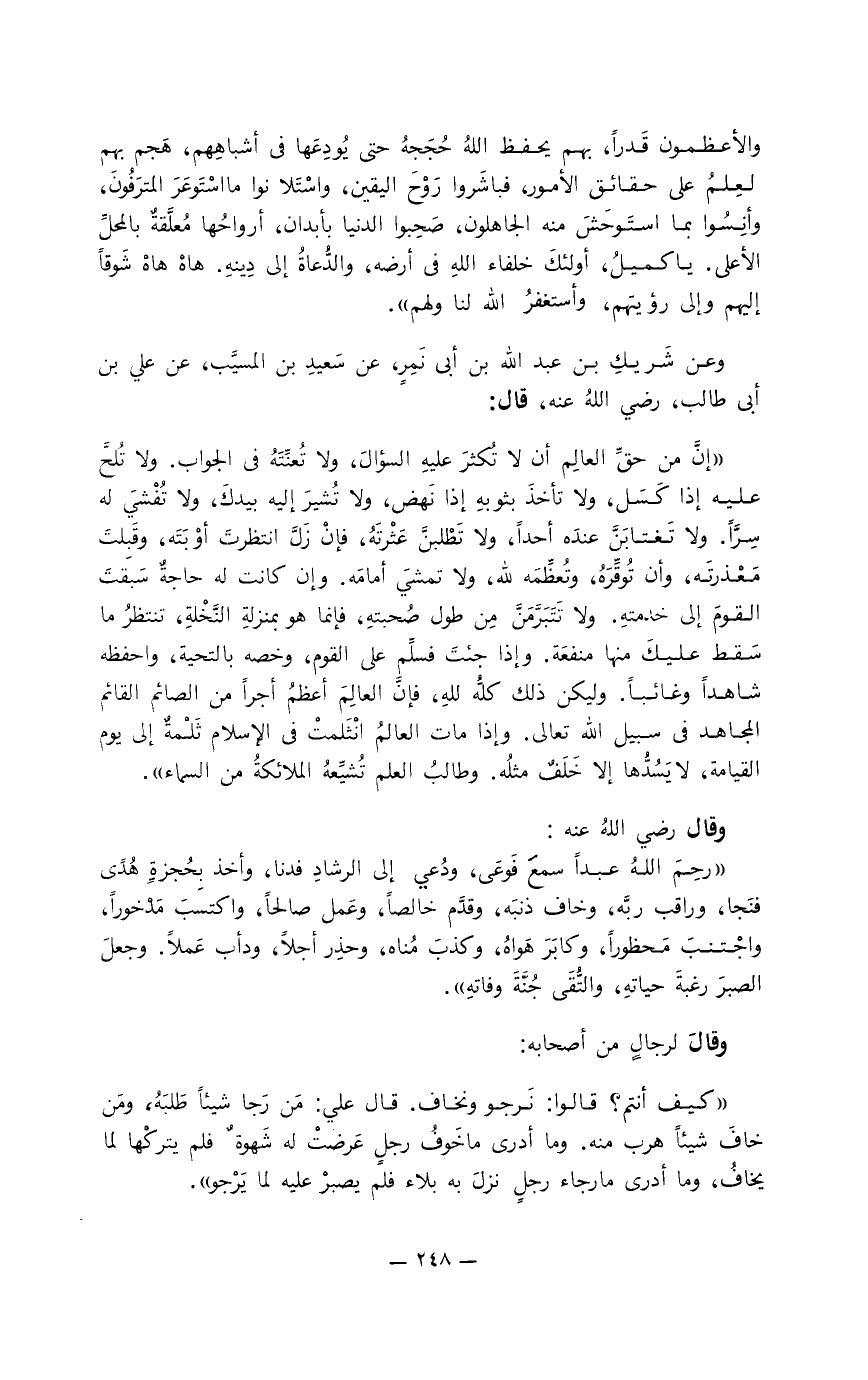 والأعظمون قَدراً، بهم يحفظ اللهُ حُجَجهُ حتى يُودِعَها فى أشباهِهم، هَجم بهم
لعِلمُ على حقائق الأمور، فباشَروا رَوْحَ اليقين، واسْتَلا نوا مااسْتَوعَرَ المترَفُونَ،
وأنِسُوا بما استَوحَشَ منه الجاهلون، صَحِبوا الدنيا بأبدان، أرواحُها مُعلَّقةٌ بالمحلِّ
الأعلى. ياكميلُ، أولئكَ خلفاء اللهِ فى أرضه، والدُّعاةُ إلى دِينهِ. هاهْ هاهْ شَوقاً
إليهم وإلى رؤيتهم، وأستغفرُ الله لنا ولهم».
وعن شَريكِ بن عبد الله بن أبى نَمِرٍ، عن سَعيدِ بن المسيَّب، عن علي بن
أبى طالب، رضي اللهُ عنه، قال:
«إنَّ من حقِّ العالِم أن لا تُكثرَ عليهِ السؤالَ، ولا تُعنِّتَهُ فى الجواب. ولا تُلحَّ
عليه إذا كَسَل، ولا تأخذَ بثوبهِ إذا نَهض، ولا تُشيرَ إليه بيدكَ، ولا تُفْشيَ له
سِرًّاً. ولا تَغتابَنَّ عندَه أحداً، ولا تَطْلبنَّ عَثْرتَهُ، فإنْ زَلَّ انتظرتَ أوْبَتَه، وقَبِلتَ
مَعْذرتَه، وأن تُوقِّرَهُ، وتُعظِّمَه لله، ولا تمشيَ أمامَه. وإن كانت له حاجةٌ سَبقتَ
القومَ إلى خدمتهِ. ولا تَتَبَرَّمَنَّ مِن طول صُحبتهِ، فإنما هو بمنزلةِ النَّخْلةِ، تنتظرُ ما
سَقط عليكَ منها منفعَة. وإذا جئتَ فسلِّم على القوم، وخصه بالتحية، واحفظه
شاهداً وغائباً. وليكن ذلك كلُّه للهِ، فإنَّ العالِمَ أعظمُ أجراً من الصائم القائم
المجاهد فى سبيل الله تعالى. وإذا مات العالمُ انْثَلمتْ فى الإسلام ثَلْمةٌ إلى يوم
القيامة، لايَسُدُّها إلا خَلَفٌ مثلُه. وطالبُ العلم تُشيِّعهُ الملائكةُ من السماء».
وقال رضي اللهُ عنه :
«رحِمَ اللهُ عبداً سمعَ فَوعَى، ودُعي إلى الرشادِ فدنا، وأخذ بِحُجزةِ هُدًى
فنَجا، وراقب ربَّه، وخاف ذنبَه، وقدَّم خالصاً، وعَمل صالحاً، واكتسبَ مَذْخوراً،
واجْتنبَ مَحظوراً، وكابَرَ هَواهُ، وكذبَ مُناه، وحذِر أجلاً، ودأب عَملاً. وجعلَ
الصبرَ رغبةَ حياتهِ، والتُّقَى جُنَّةَ وفاتهِ».
وقالَ لرجالٍ من أصحابه:
«كيف أنتم؟ قالوا: نَرجو ونخاف. قال علي: مَن رَجا شيئاً طَلبَهُ، ومَن
خافَ شيئاً هرب منه. وما أدرى ماخَوفُ رجلٍ عَرضتْ له شَهوةٌ فلم يتركْها لما
يخافُ، وما أدرى مارجاء رجلٍ نزلَ به بلاء فلم يصبرْ عليه لما يَرْجو».
— ٢٤٨ —